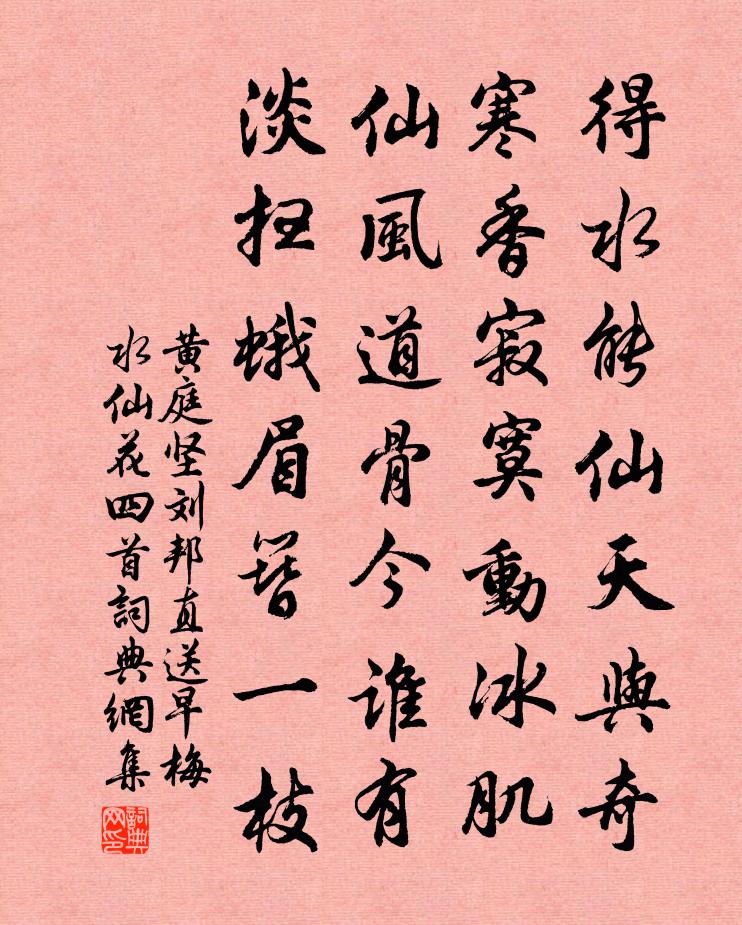 得水能仙天與奇
寒香寂寞動冰肌
仙風道骨今誰有
淡扫蛾眉簪一枝
黄庭坚刘邦直送早梅
水仙花四首詞典網集
詞典
网印